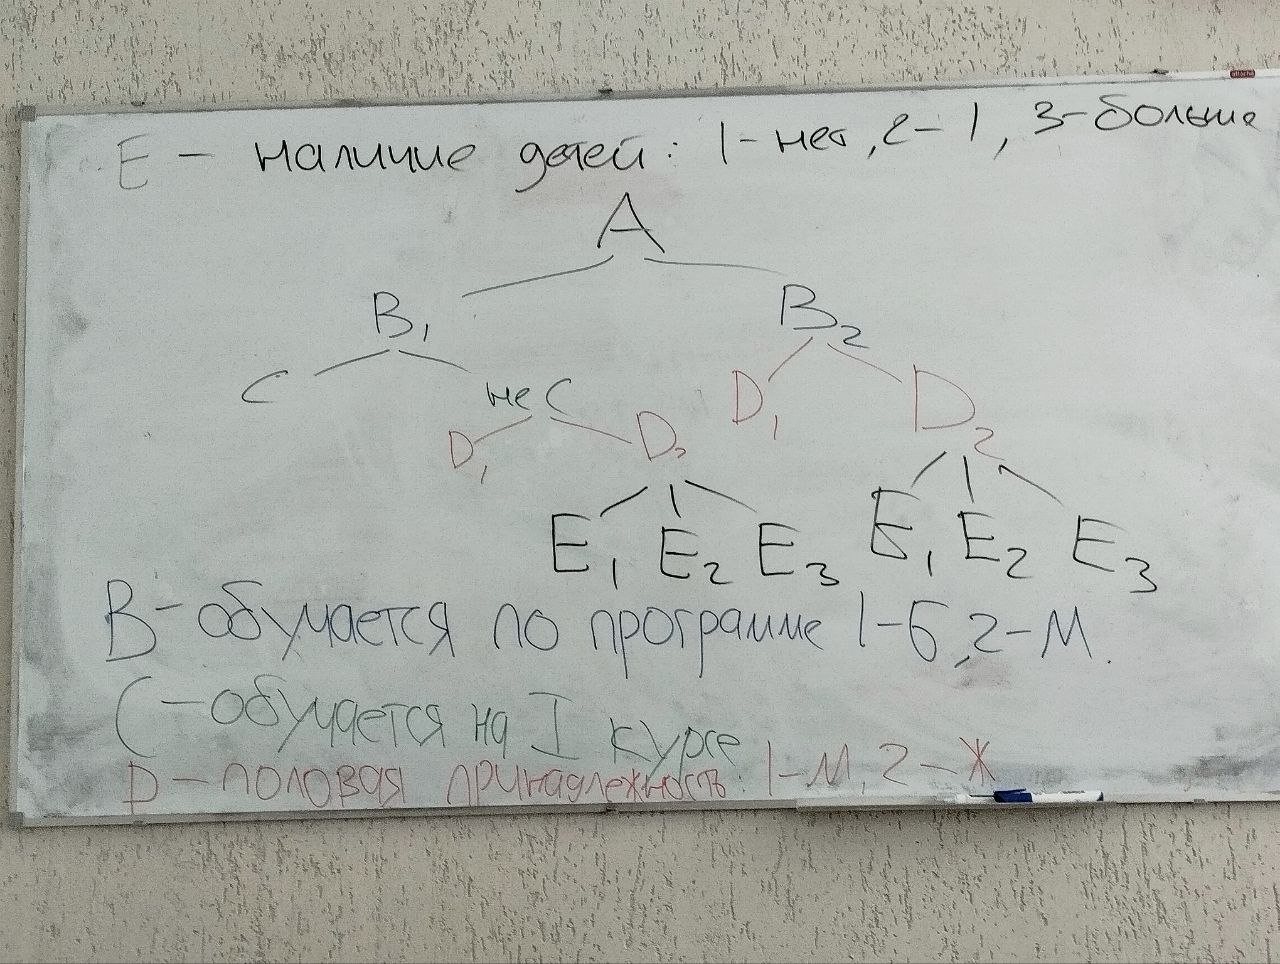 E - наличие детей: 1-нет, 2-1, 3-больше
A
B1 B2
C не C D1 D2
D1 D2
E1 E2 E3 E1 E2 E3
B-обучается по программе 1-б, 2-м.
C-обучается на I курсе
D-половая принадлежность: 1-м, 2-ж